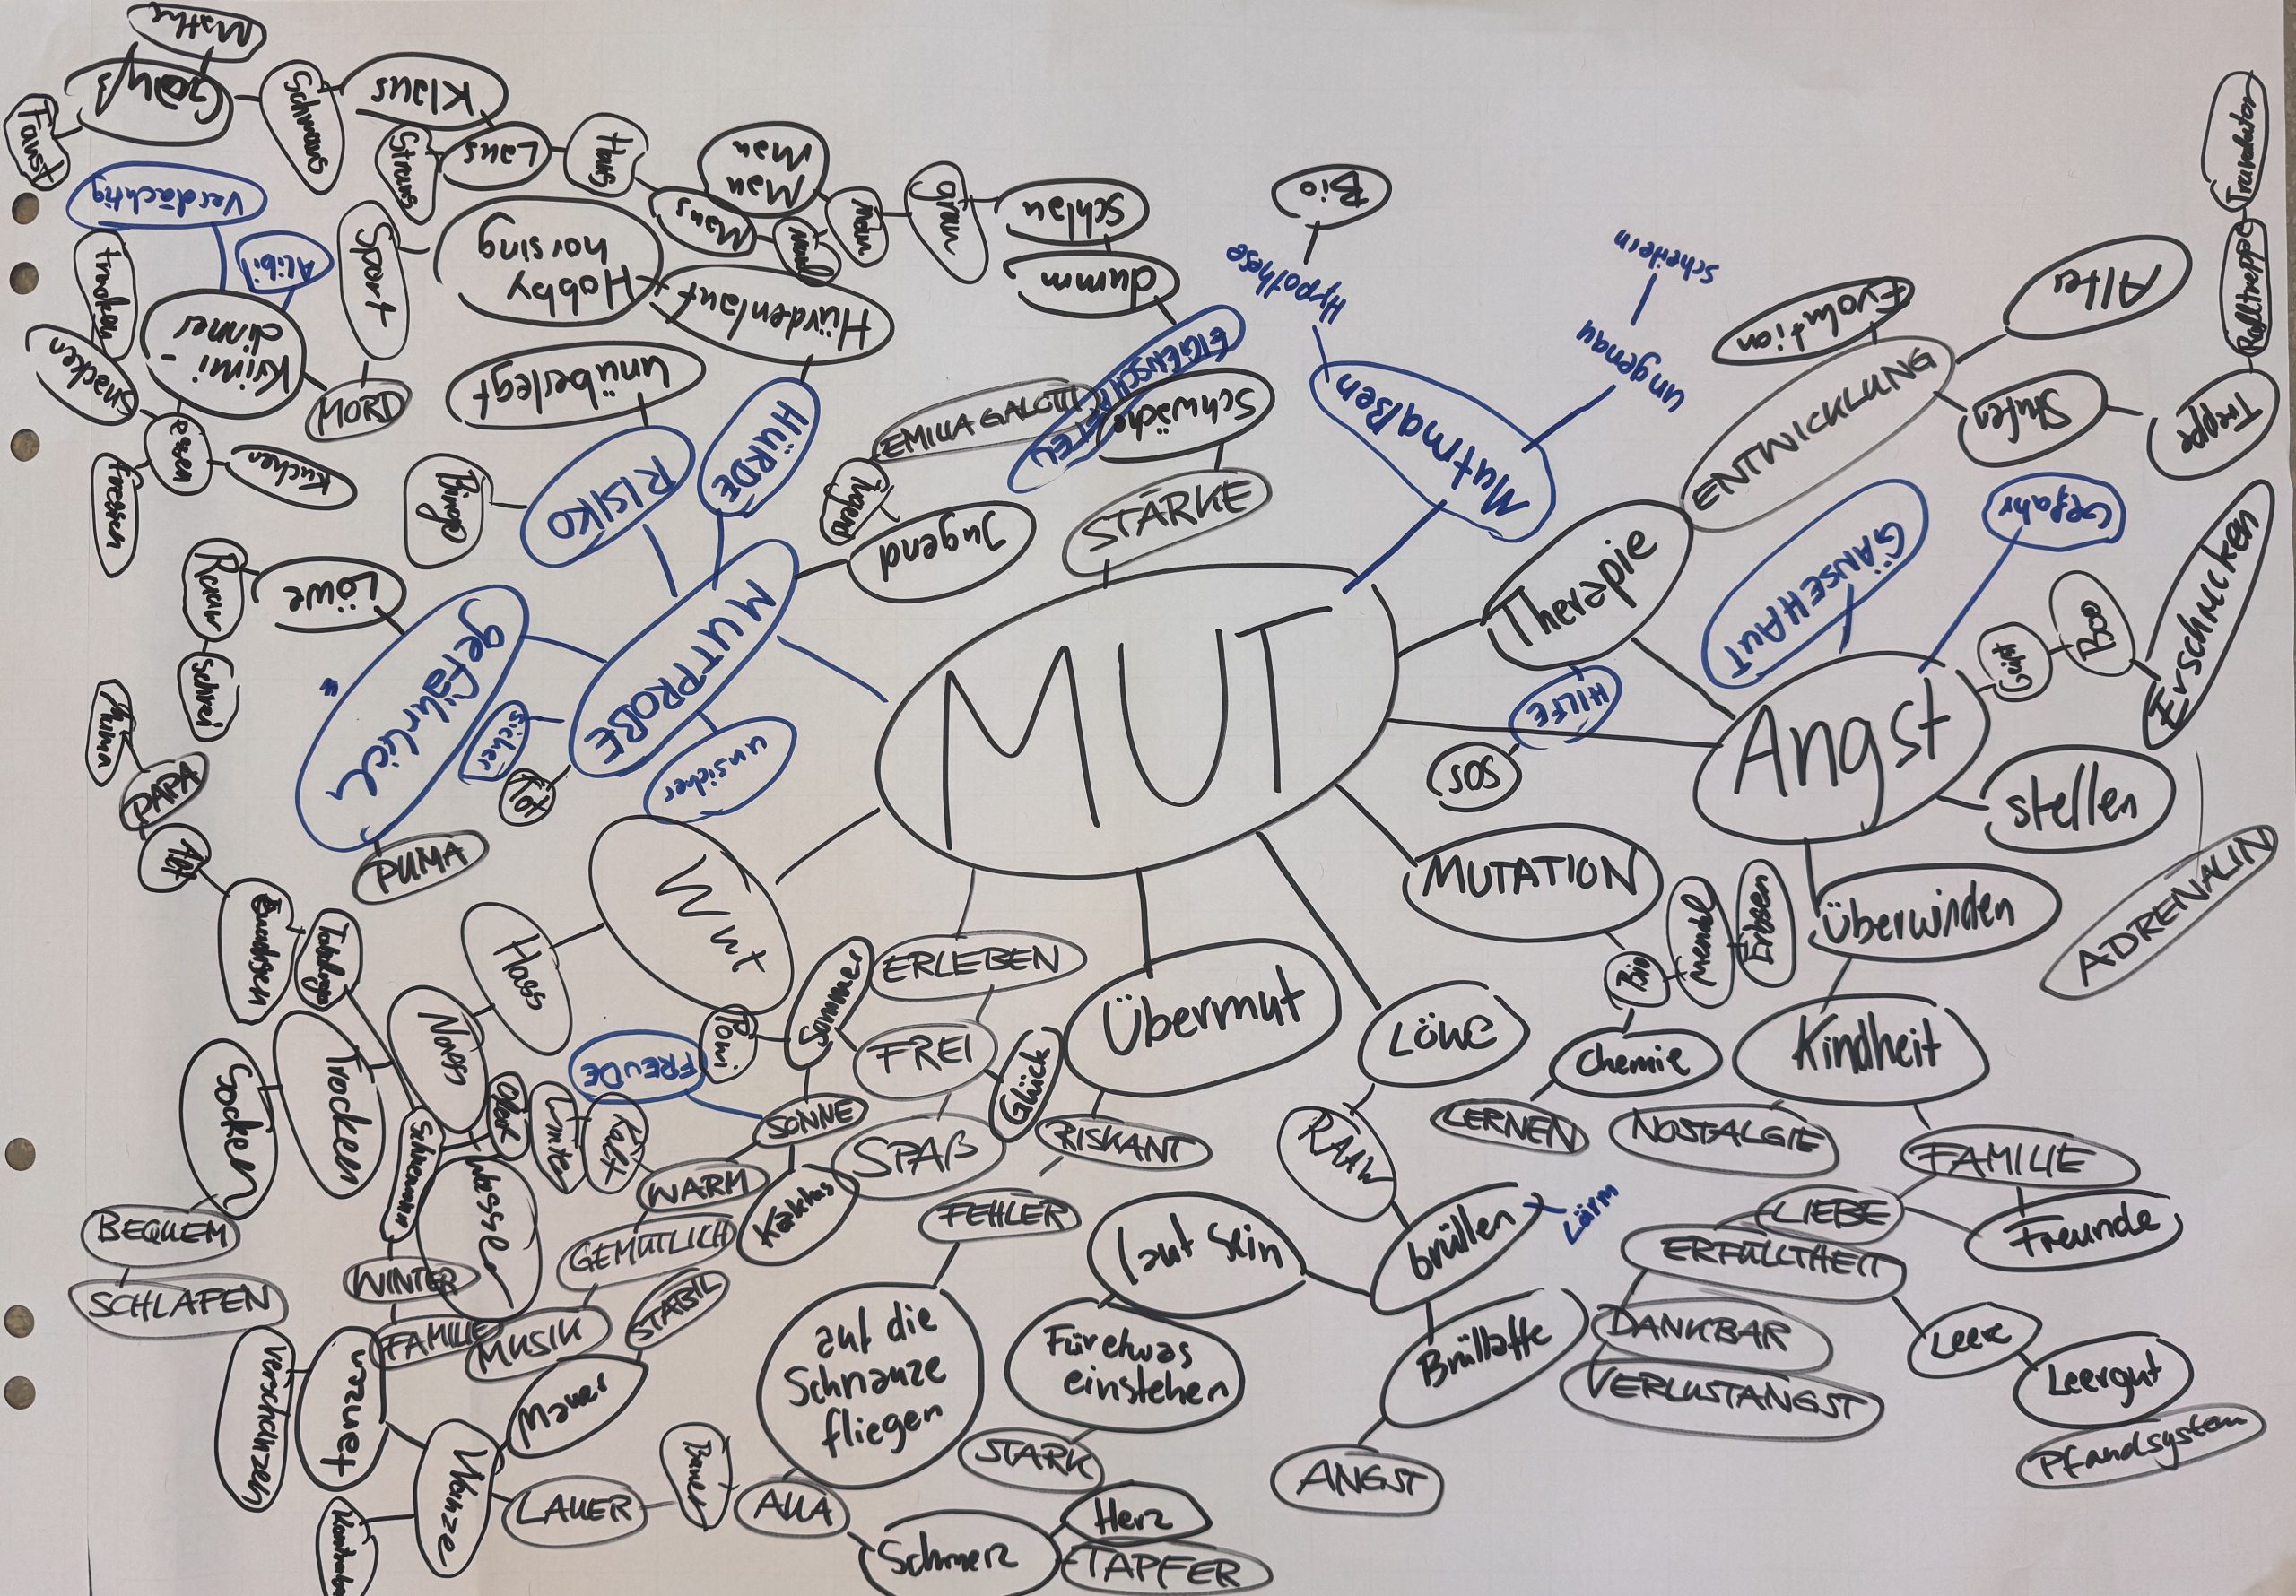 Mathe
Faust
Schmaus
Klaus
Strauß
Laus
Haus
Mau
Mau
Maus
grau
schlau
dumm
Verdächtig
Alibi
Krimi-
dinner
trinken
snacken
essen
fressen
Kuchen
MORD
Sport
Hobby
horsing
Hürdenlauf
unüberlegt
HÜRDE
RISIKO
Bingo
EMILIA GALOTTI
Tugend
Jugend
Schwäche
STÄRKE
Bio
Hypothese
Mutmaßen
ungenau
scheitern
Evolution
ENTWICKLUNG
Alter
Stufen
Treppe
Rolltreppe
Gefahr
GÄNSEHAUT
Geist
Boo
Erschrecken
ADRENALIN
Therapie
HILFE
SOS
Angst
stellen
überwinden
MUT
MUTPROBE
gefährlich
sicher
unsicher
Löwe
Raaw
Schrei
PUMA
PAPA
Alt
Wut
Hass
Nass
Trocken
Socken
BEQUEM
SCHLAFEN
Wasser
WINTER
FAMILIE
MUSIK
GEMÜTLICH
WARM
Kalt
SONNE
FREUDE
Sommer
Kaktus
ERLEBEN
FREI
Glück
SPAß
Übermut
RISKANT
FEHLER
auf die
Schnauze
fliegen
AUA
Schmerz
Herz
TAPFER
Bauer
LAUER
Mauer
STABIL
Verschanzen
LÖWE
RAAW
brüllen
Lärm
laut sein
Für etwas
einstehen
STARK
Brüllaffe
ANGST
MUTATION
Bio
Mendel
Erbsen
Chemie
LERNEN
Kindheit
NOSTALGIE
FAMILIE
LIEBE
Freunde
ERFÜLLTHEIT
DANKBAR
VERLUSTANGST
Leere
Leergut
Pfandsystem